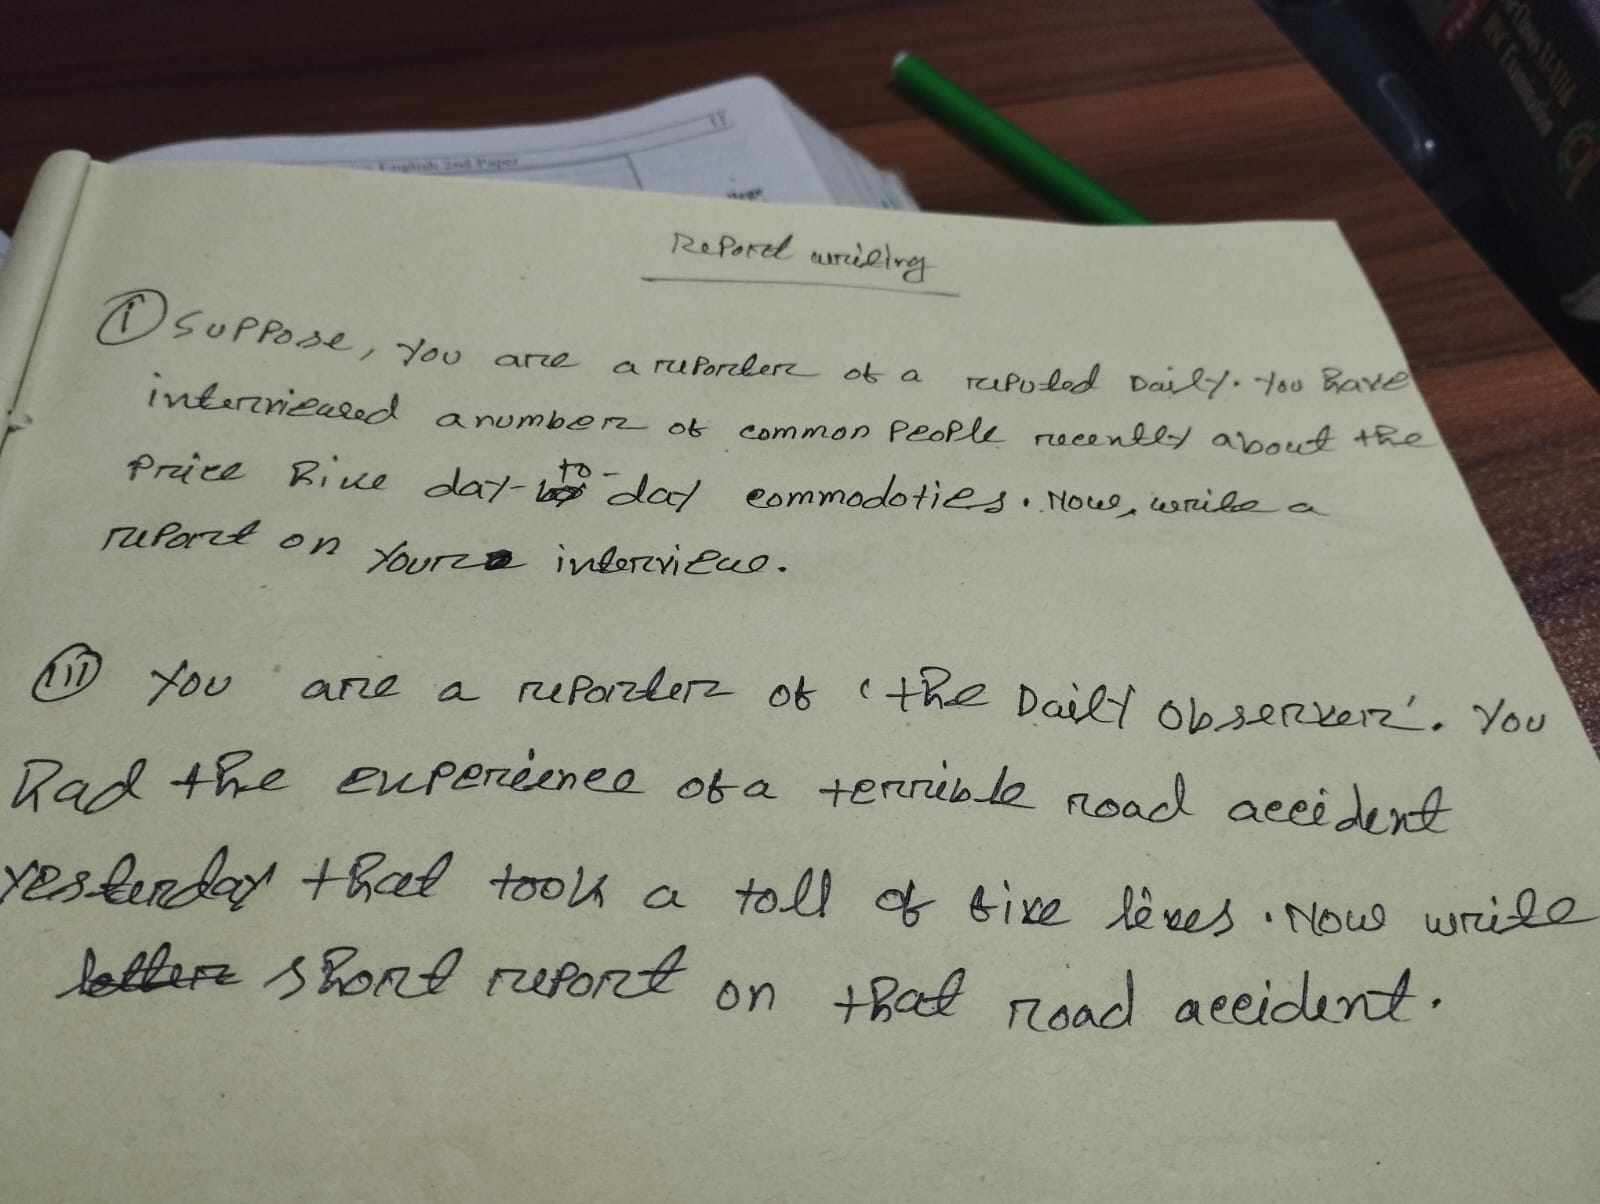 English 2nd Paper
Report writing
(i) Suppose, you are a reporter of a reputed Daily. You have
interviewed a number of common people recently about the
price hike day-to-day commodoties. Now, write a
report on your interview.
(iii) You are a reporter of 'the Daily Observer'. You
had the experience of a terrible road accident
yesterday that took a toll of five lives. Now write
letter short report on that road accident.